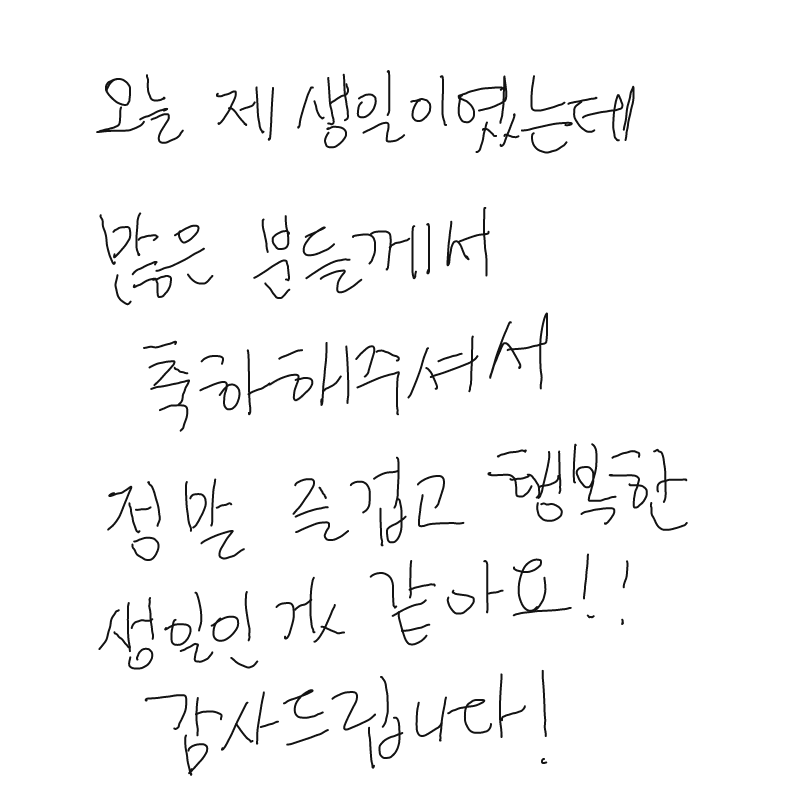 오늘 제 생일이였는데
많은 분들께서
축하해주셔서
정말 즐겁고 행복한
생일인 것 같아요!!
감사드립니다!